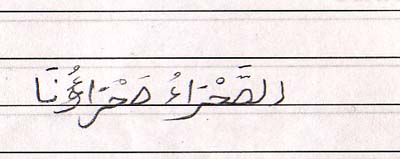 الصَّحْرَاءُ صَحْرَاؤُنَا